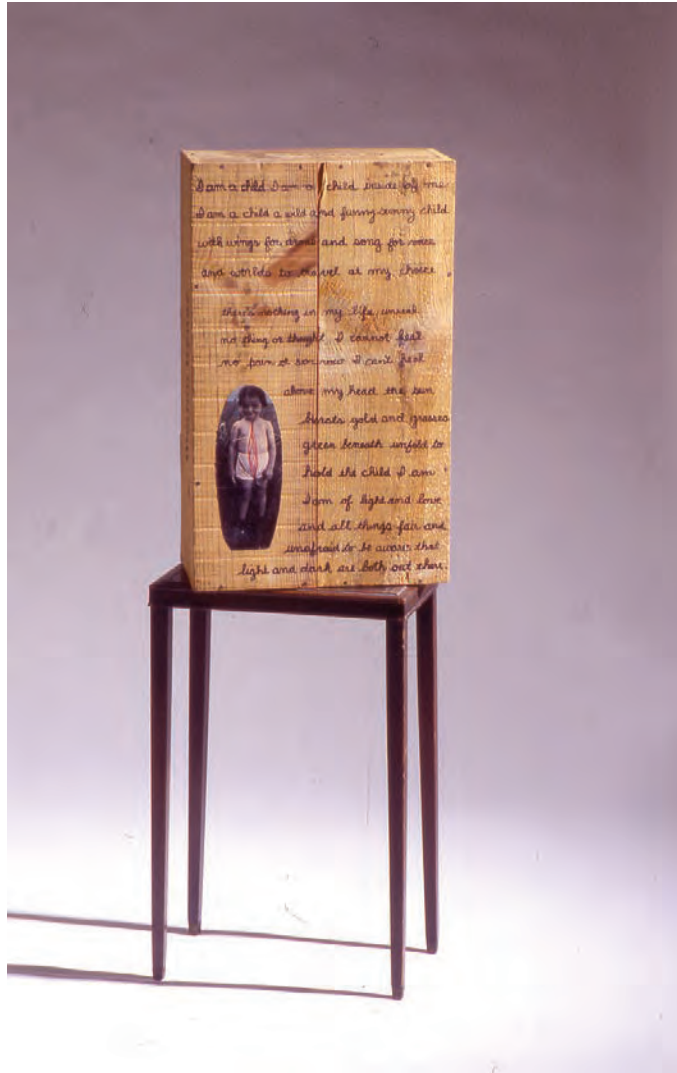 I am a child I am a child inside of me
I am a child a wild and funny sunny child
with wings for arms and song for voice
and worlds to travel at my choice
there's nothing in my life unreal
no thing or thought I cannot feel
no pain or sorrow I can't heal
above my head the sun
bursts gold and grasses
green beneath unfold to
hold the child I am
I am of light and love
and all things fair and
unafraid to be aware that
light and dark are both out there.